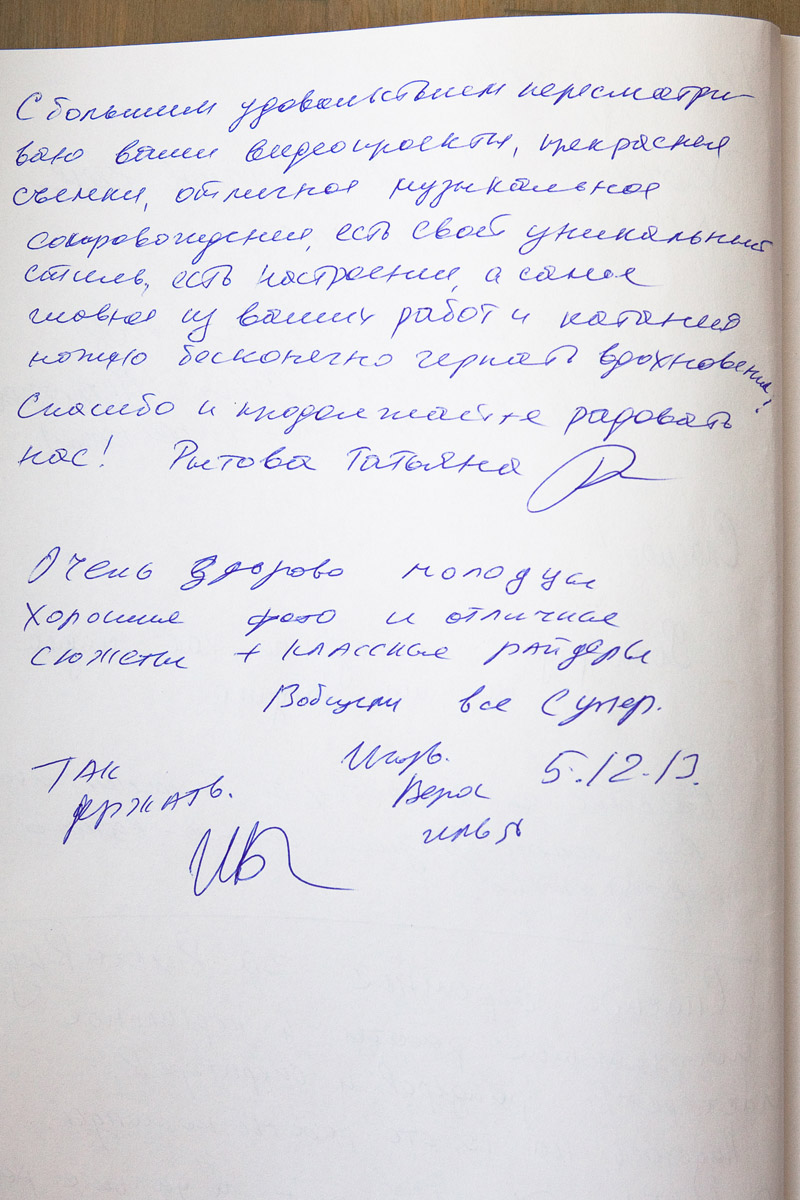 С большим удовольствием пересматри-
ваю ваши видеопроекты, прекрасная
съемка, отличное музыкальное
сопровождение, есть свой уникальный
стиль, есть настроение, а самое
главное из ваших работ и катания
можно бесконечно черпать вдохновение!
Спасибо и продолжайте радовать
нас! Рытова Татьяна
Очень здорово молодцы
хорошие фото и отличные
сюжеты + классные райдеры
Вобщем все Супер.
Так держать.
Игорь. 5.12.13.
Вера
Илья